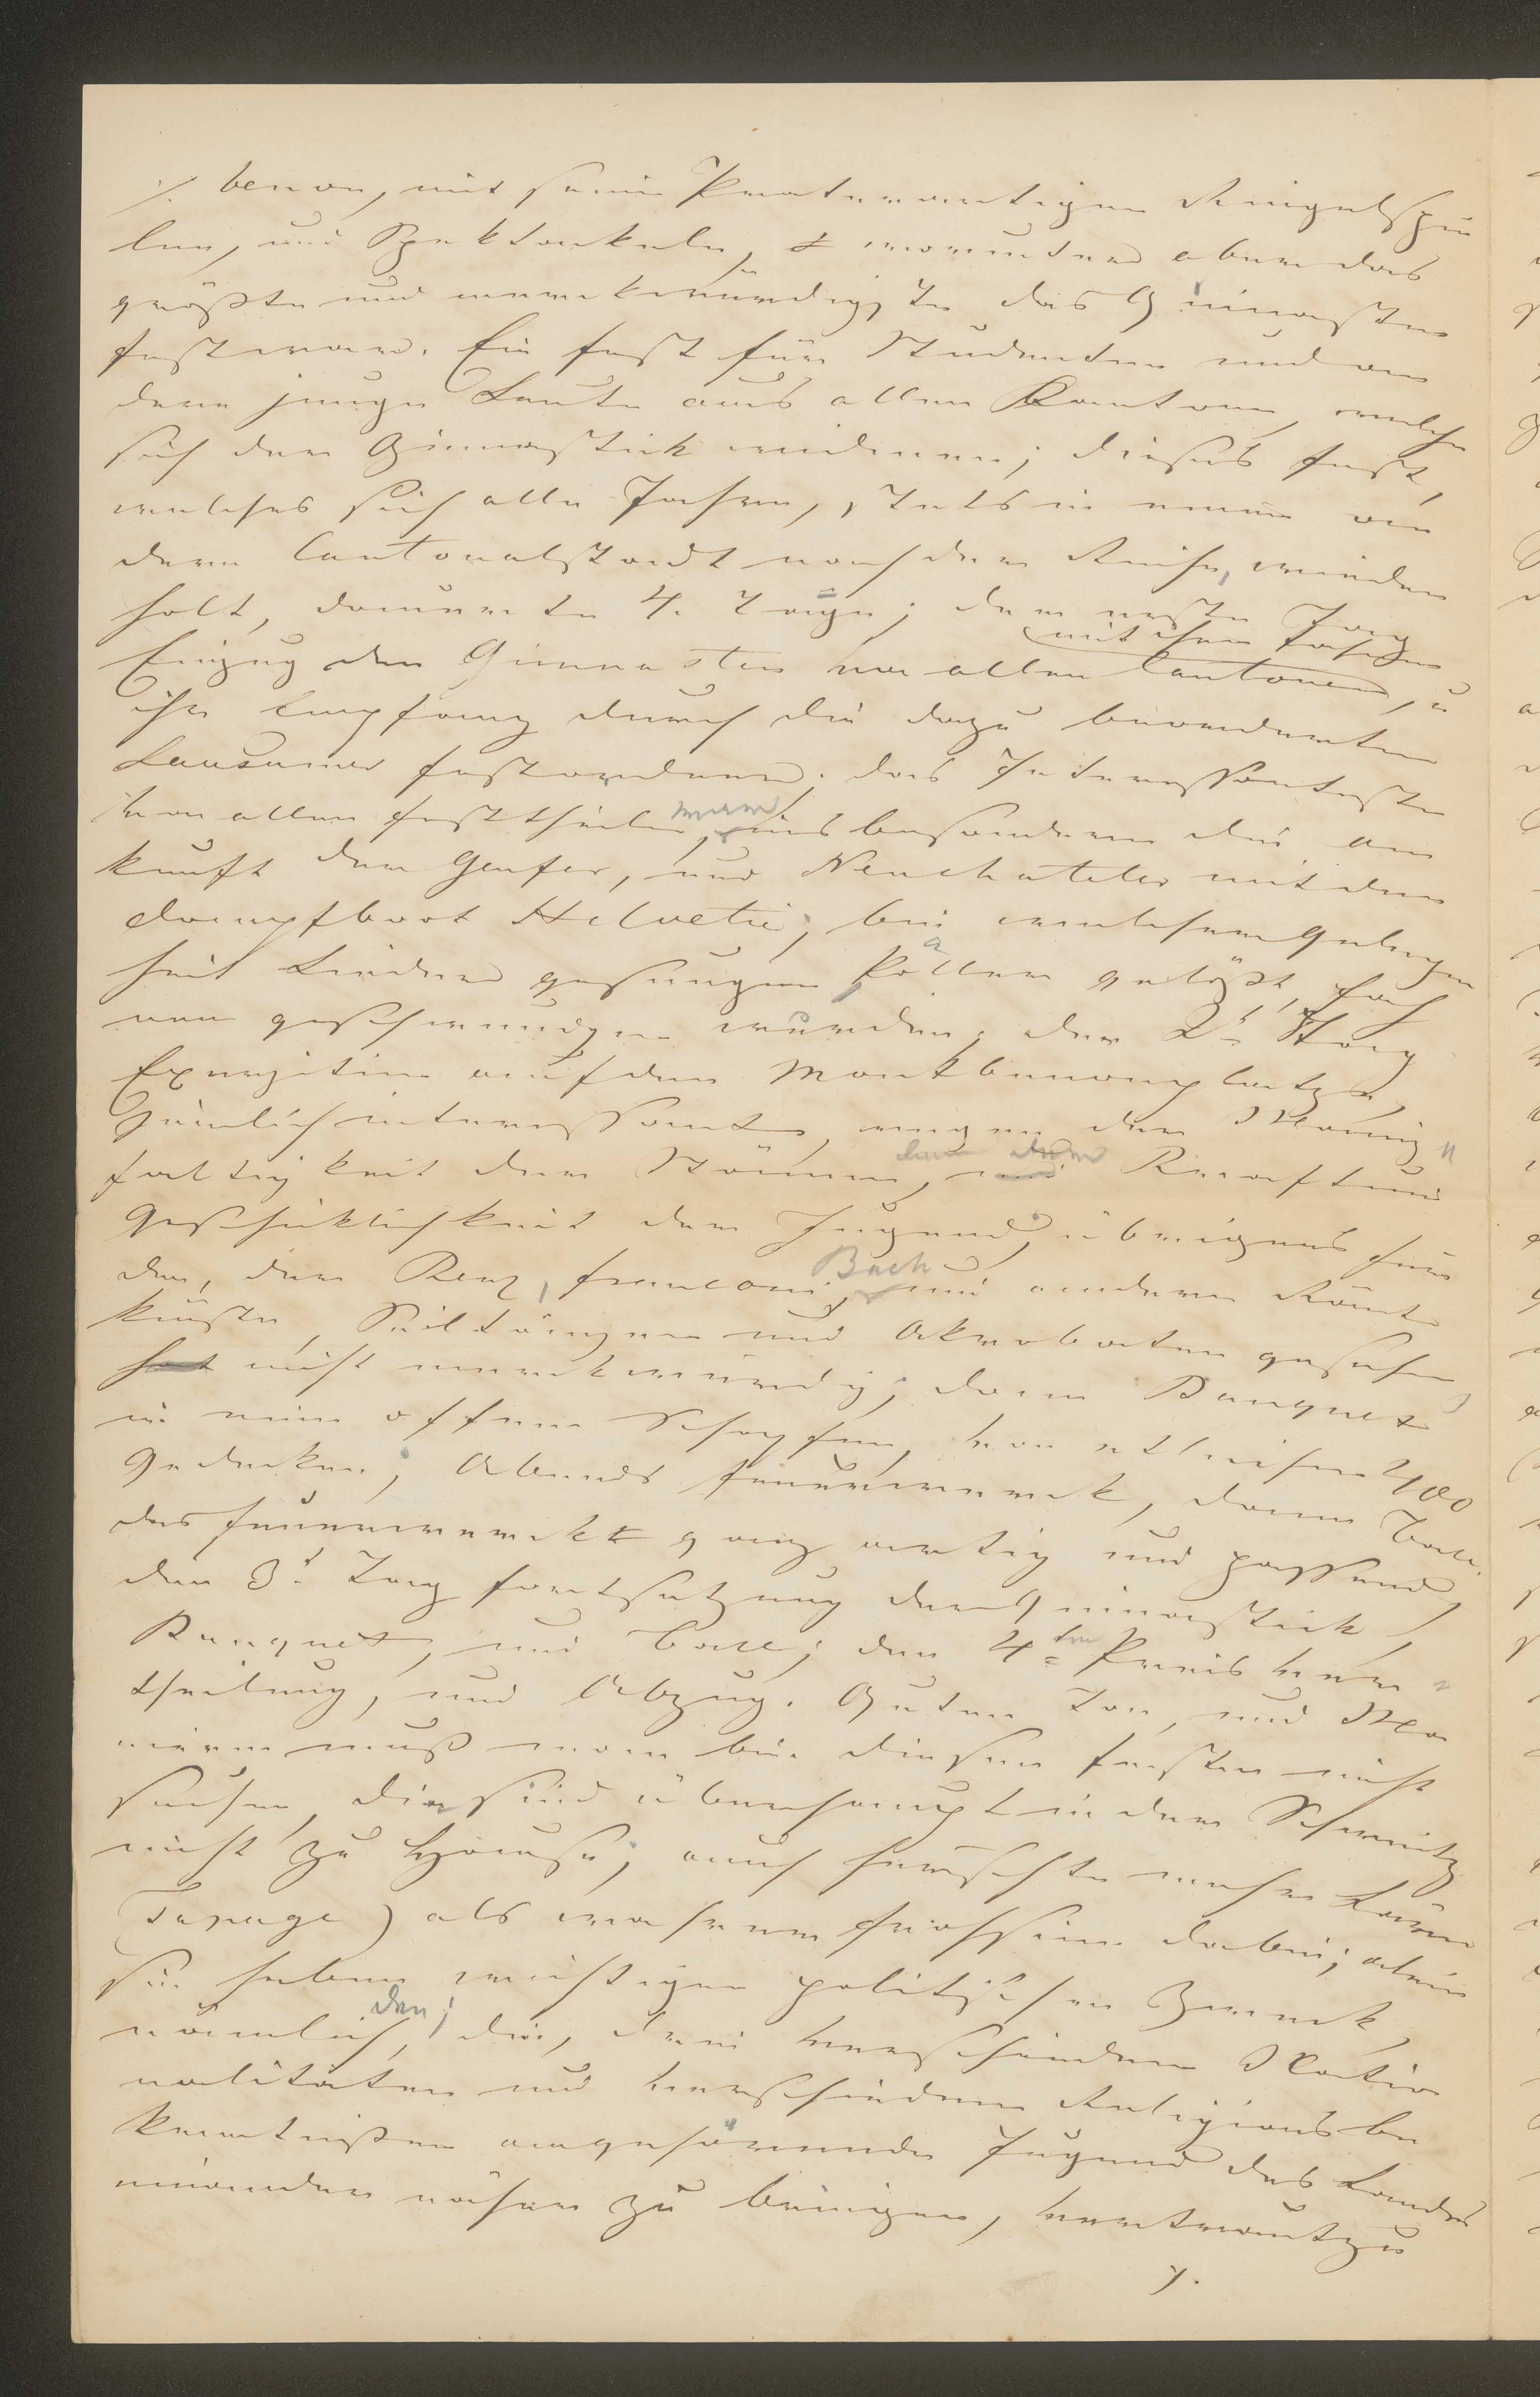 ./. benon, mit seinen Praterartigen Ringelspie
len, und Spektakeln, worunter aber das
größte und merkwürdigste das Gimnasten
fest war. Ein Fest für Studenten und an
dere junge Leute aus allen Kantonen, welche
sich der Gimnastick widmen; dieses Fest,
welches sich alle Jahre, stets in einer an
dern Cantonalstadt nach der Reihe, wieder
holt, dauerte 4. Tage; der erste Tag
mit ihren Fahnen
Einzug der Gimnasten von allen Cantonen, u
ihr Empfang durch die dazu beorderten
Lausanner Festordner. das Interessanteste
von allen Festtheilen, war insbesondere die An
kunft der Genfer, und Neuchateler mit dem
Dampfboot Helvetie; bei welcher Gelegen
heit Lieder gesungen Pöller gelößt, Fah
nen geschwungen wurden; der 2t Tag
Exerzitien auf dem Montbenonplatze,
ziemlich interessant, wegen der Mannig
faltigkeit der Stämme, dann der Kraft und
Geschicklichkeit der Jugend, übrigens für
den, der Renz, Franconi, Bach und andere Kunst
künste, Seiltänzer und Akrobaten gesehen
hat nicht merkwürdig; dann Banquet
in einer offenen Schopfen, von etlichen 400
Gedecken; Abends Feuerwerk, dann Ball.
das Feuerwerk ganz artig und passend,
den 3t Tag Fortsetzung der Gimnastick,
Banquet, und Ball; den 4ten Preisver
theilung, und Abzug. Guten Ton, und Ma
nieren muß man bei diesen Festen nicht
suchen, die sind überhaupt in der Schweitz
nicht zu Hause; auch herrschte mehr Lärm
(Tapage) als wahrer Frohsinn dabei; allein
sie haben wichtigen politischen Zweck,
nämlich, den, die, drei verschiedenen Natio
nalitäten und verschiedenen Religionsbe
kenntnißen angehörende Jugend des Landes
einander näher zu bringen, vertraut zu
./.